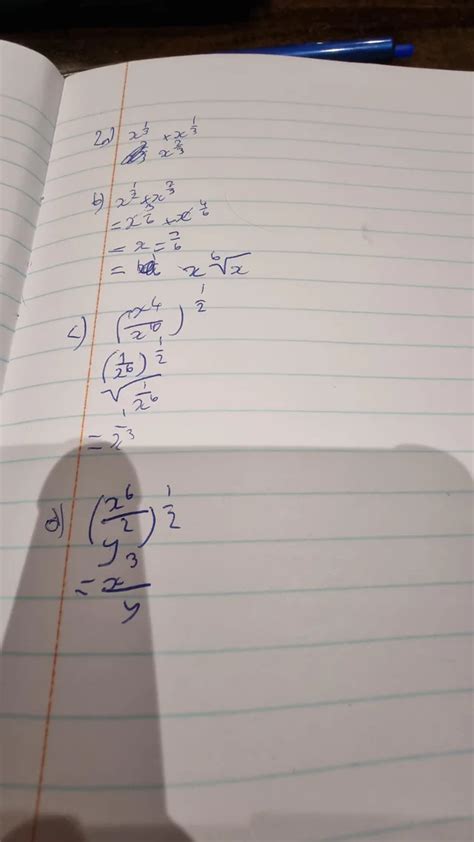 2a) x^{1/3} × x^{1/3}
x^{2/3}
b) x^{1/2} × x^{2/3}
= x^{3/6} × x^{4/6}
= x = ^{7/6}
= x ⁶√x
c) (x^4/x^{10})^{1/2}
(1/x^6)^{1/2}
√(1/x^6)
= 1/x^3
d) (x^6/y^2)^{1/2}
= x^3/y